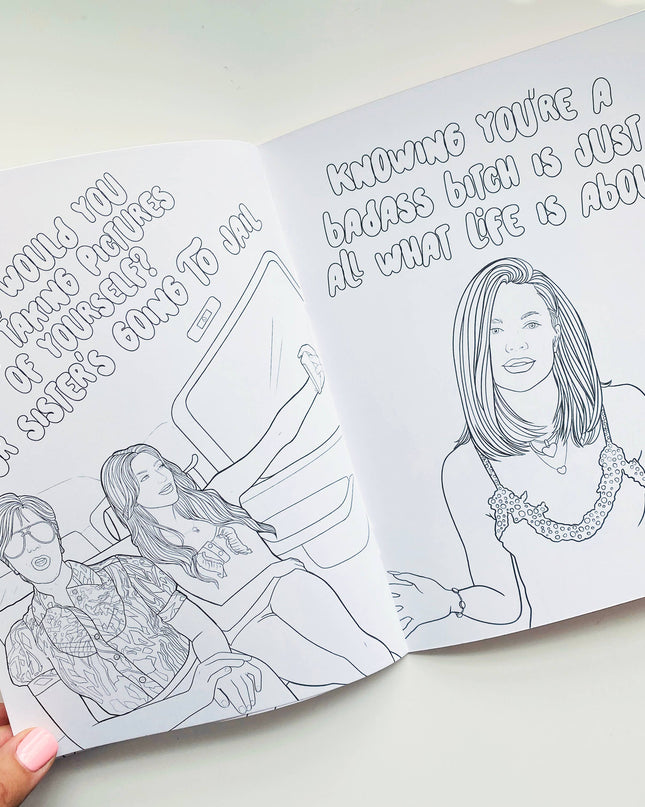 WOULD YOU
TAKING PICTURES
OF YOURSELF?
SISTER'S GOING TO JAIL
KNOWING YOU'RE A
BADASS BITCH IS JUST
ALL WHAT LIFE IS